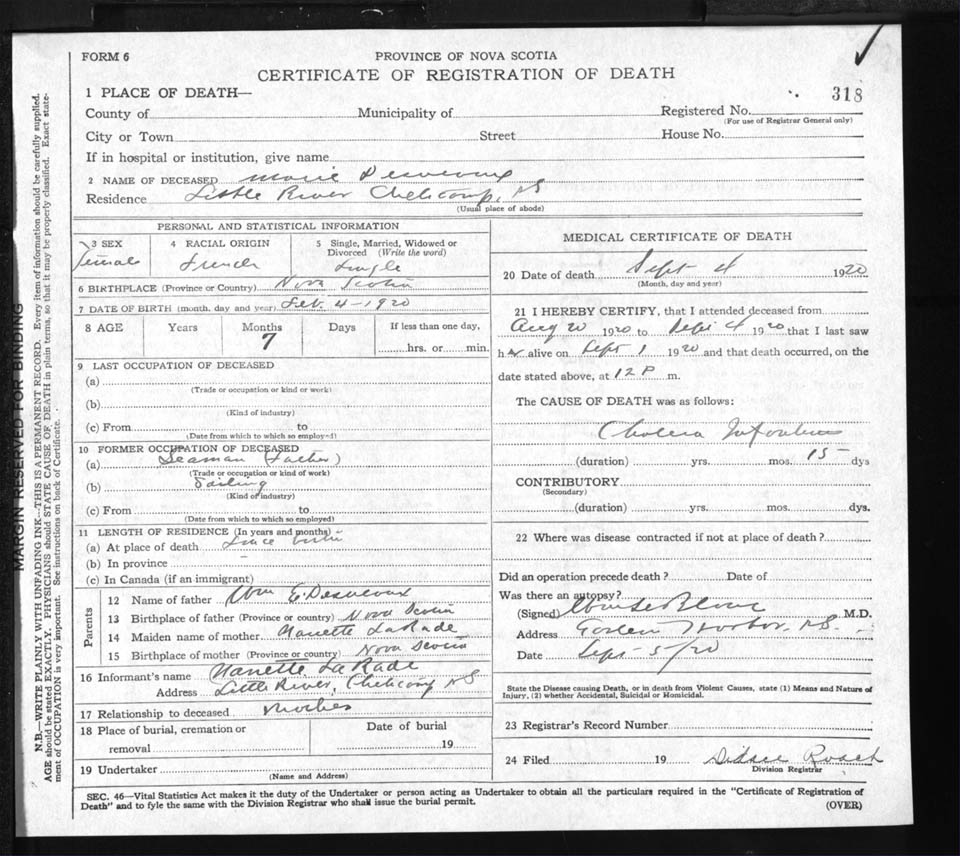 FORM 6
PROVINCE OF NOVA SCOTIA
CERTIFICATE OF REGISTRATION OF DEATH
318
1 PLACE OF DEATH—
County of Municipality of Registered No.
(For use of Registrar General only)
City or Town Street House No.
If in hospital or institution, give name
2 NAME OF DECEASED Marie
Residence Little River Cheticamp, NS
(Usual place of abode)
PERSONAL AND STATISTICAL INFORMATION
3 SEX 4 RACIAL ORIGIN 5 Single, Married, Widowed or
Divorced (Write the word)
Female French Single
6 BIRTHPLACE (Province or Country) Nova Scotia
7 DATE OF BIRTH (month, day and year) Feb. 4 - 1920
8 AGE Years Months Days If less than one day,
7
hrs. or min.
9 LAST OCCUPATION OF DECEASED
(a)
(Trade or occupation or kind or work)
(b)
(Kind of industry)
(c) From to
(Date from which to which so employed)
10 FORMER OCCUPATION OF DECEASED
(a) Seaman (Father)
(Trade or occupation or kind of work)
(b) Sailing
(Kind of industry)
(c) From to
(Date from which to which so employed)
11 LENGTH OF RESIDENCE (In years and months)
(a) At place of death Since birth
(b) In province
(c) In Canada (if an immigrant)
Parents
12 Name of father Wm E.
13 Birthplace of father (Province or country) Nova Scotia
14 Maiden name of mother Nanette LaRade
15 Birthplace of mother (Province or country) Nova Scotia
16 Informant's name Nanette LaRade
Address Little River, Cheticamp NS
17 Relationship to deceased Mother
18 Place of burial, cremation or
removal
Date of burial
19
19 Undertaker
(Name and Address)
MEDICAL CERTIFICATE OF DEATH
20 Date of death Sept 4 1920
(Month, day and year)
21 I HEREBY CERTIFY, that I attended deceased from
Aug 20 1920 to Sept 4 1920 that I last saw
h alive on Sept 1 1920 and that death occurred, on the
date stated above, at 12 P m.
The CAUSE OF DEATH was as follows:
Cholera Infantum
(duration) yrs. mos. 15 dys
CONTRIBUTORY
(Secondary)
(duration) yrs. mos. dys.
22 Where was disease contracted if not at place of death?
Did an operation precede death? Date of
Was there an autopsy?
(Signed) M.D.
Address Harbor, N.S.
Date Sept 5/20
State the Disease causing Death, or in death from Violent Causes, state (1) Means and Nature of
Injury, (2) whether Accidental, Suicidal or Homicidal.
23 Registrar's Record Number
24 Filed 19 Roach
Division Registrar
SEC. 46—Vital Statistics Act makes it the duty of the Undertaker or person acting as Undertaker to obtain all the particulars required in the "Certificate of Registration of
Death" and to fyle the same with the Division Registrar who shall issue the burial permit.
(OVER)
MARGIN RESERVED FOR BINDING
N.B.—WRITE PLAINLY WITH UNFADING INK—THIS IS A PERMANENT RECORD. Every item of information should be carefully supplied.
AGE should be stated EXACTLY. PHYSICIANS should STATE CAUSE OF DEATH in plain terms, so that it may be properly classified. Exact state-
ment of OCCUPATION is very important. See instructions on back of Certificate.